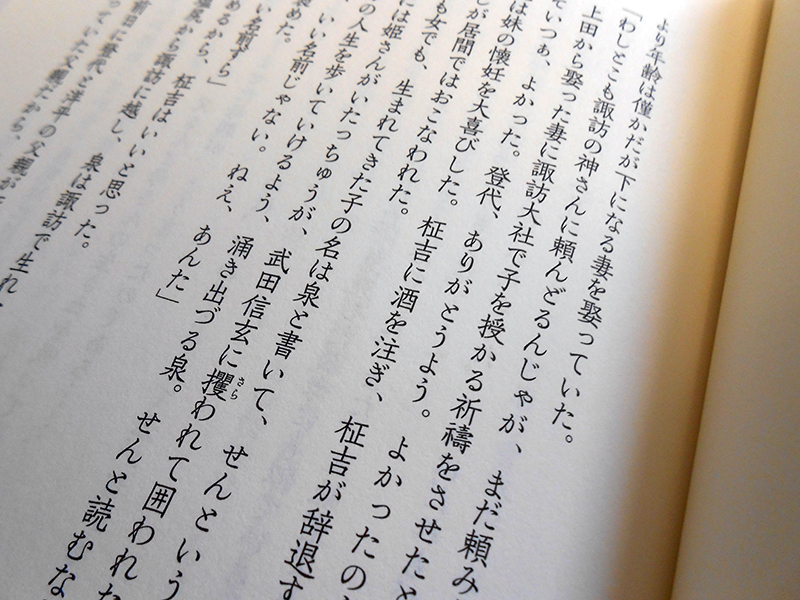 より年齢は僅かだが下になる妻を娶っていた。
「わしとこも諏訪の神さんに頼んどるんじゃが、まだ頼み
上田から娶った妻に諏訪大社で子を授かる祈禱をさせたと
ていつぁ、よかった。登代、ありがとうよう。よかったの、
は妹の懐妊を大喜びした。柾吉に酒を注ぎ、柾吉が辞退す
が居間ではおこなわれた。
も女でも、生まれてきた子の名は泉と書いて、せんという
には姫さんがいたっちゅうが、武田信玄に攫われて囲われた
さら
の人生を歩いていけるよう、涌き出づる泉。せんと読むな
いい名前じゃない。ねえ、あんた」
い名前ずら」
めるから、柾吉はいいと思った。
から諏訪に越し、泉は諏訪で生れ
前日に登代と洋平の父親
っていた父親だから、